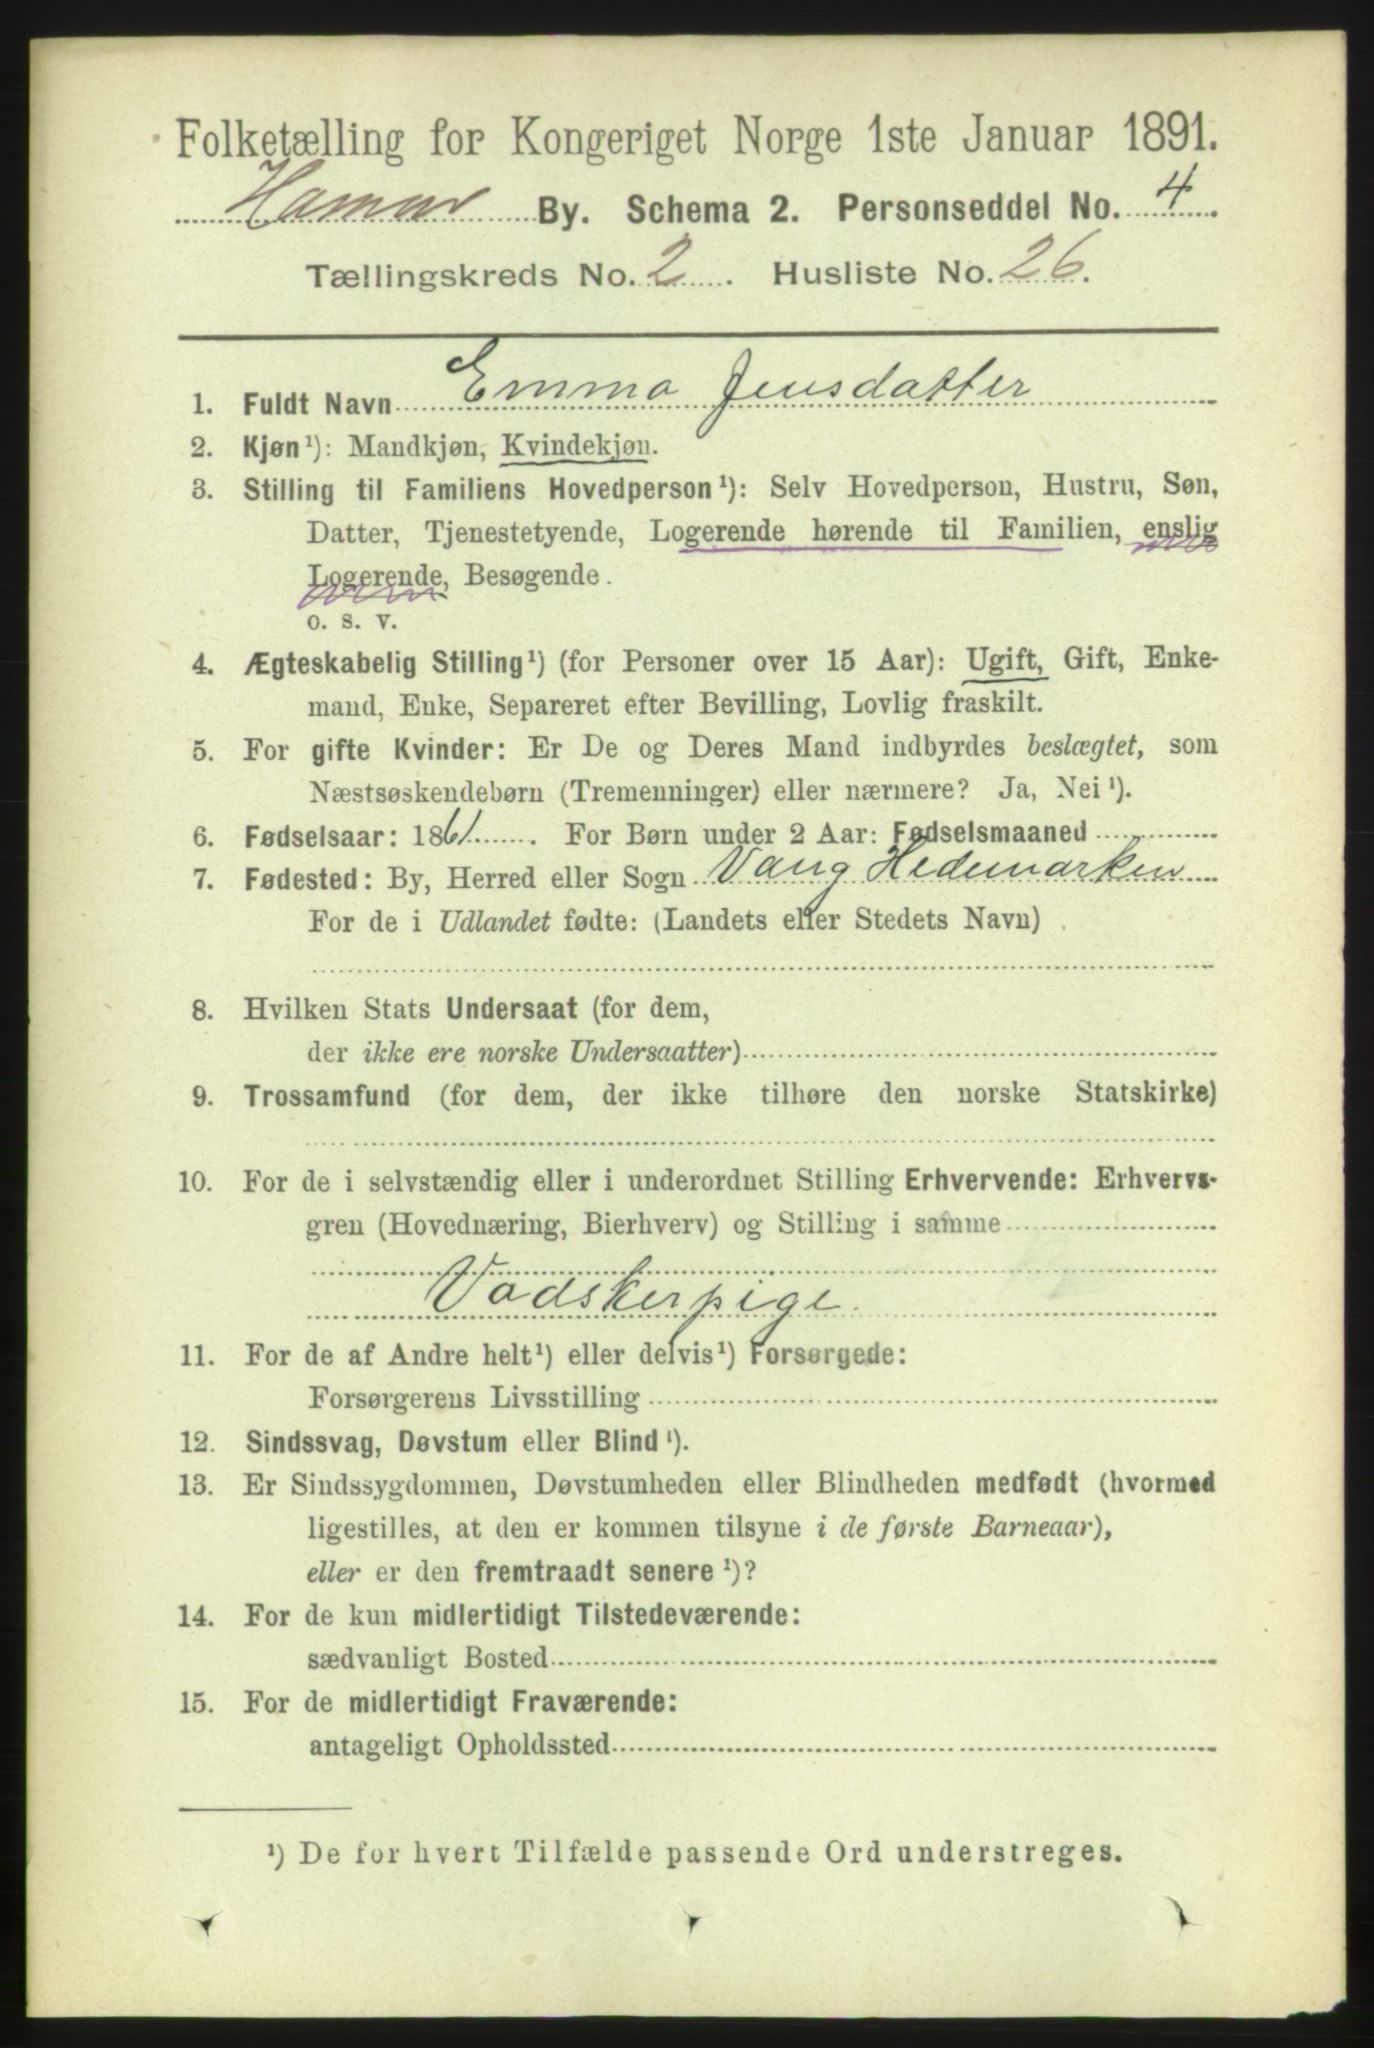 Folketælling for Kongeriget Norge 1ste Januar 1891.
Hamar By. Schema 2. Personseddel No. 4
Tællingskreds No. 2. Husliste No. 26.
1. Fuldt Navn Emma Jensdatter
2. Kjøn¹): Mandkjøn, Kvindekjøn.
3. Stilling til Familiens Hovedperson¹): Selv Hovedperson, Hustru, Søn,
Datter, Tjenestetyende, Logerende hørende til Familien, enslig
Logerende, Besøgende.
o. s. v.
4. Ægteskabelig Stilling¹) (for Personer over 15 Aar): Ugift, Gift, Enke-
mand, Enke, Separeret efter Bevilling, Lovlig fraskilt.
5. For gifte Kvinder: Er De og Deres Mand indbyrdes beslægtet, som
Næstsøskendebørn (Tremenninger) eller nærmere? Ja, Nei¹).
6. Fødselsaar: 1861. For Børn under 2 Aar: Fødselsmaaned
7. Fødested: By, Herred eller Sogn Vang Hedemarken
For de i Udlandet fødte: (Landets eller Stedets Navn)
8. Hvilken Stats Undersaat (for dem,
der ikke ere norske Undersaatter)
9. Trossamfund (for dem, der ikke tilhøre den norske Statskirke)
10. For de i selvstændig eller i underordnet Stilling Erhvervende: Erhvervs-
gren (Hovednæring, Bierhverv) og Stilling i samme
Vadskerpige.
11. For de af Andre helt¹) eller delvis¹) Forsørgede:
Forsørgerens Livsstilling
12. Sindssvag, Døvstum eller Blind¹).
13. Er Sindssygdommen, Døvstumheden eller Blindheden medfødt (hvormed
ligestilles, at den er kommen tilsyne i de første Barneaar),
eller er den fremtraadt senere¹)?
14. For de kun midlertidigt Tilstedeværende:
sædvanligt Bosted
15. For de midlertidigt Fraværende:
antageligt Opholdssted
¹) De for hvert Tilfælde passende Ord understreges.